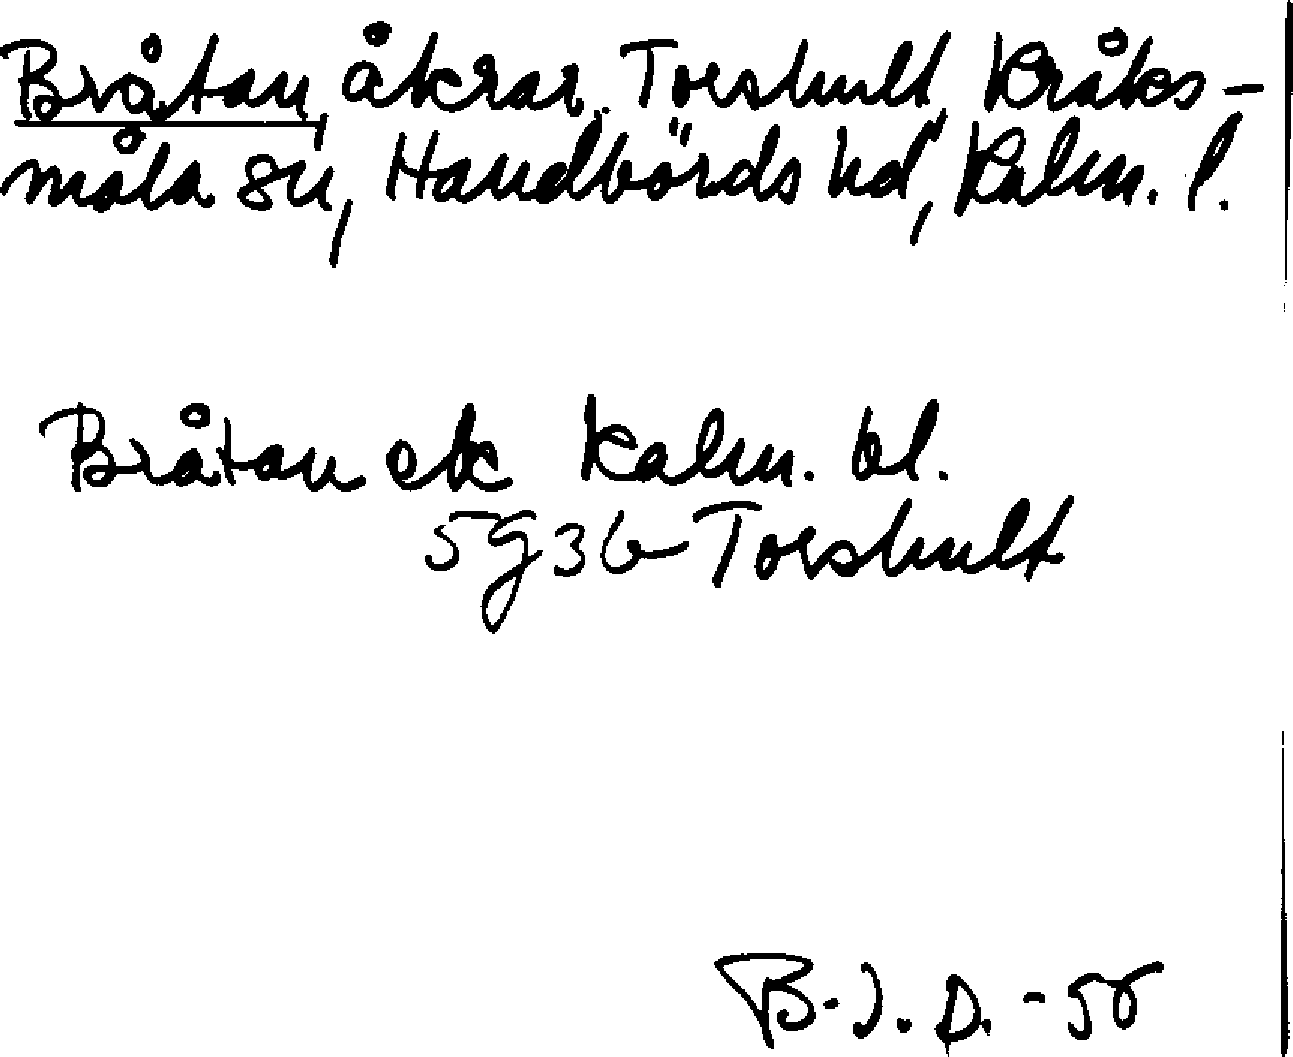 Bråtan, åkrar, Toeshult, Kråks-
måla sn, Handbörds hd, Kalm. l.
Bråtan ek Kalm. bl.
5g36 Toeshult
B.J.D. - 55